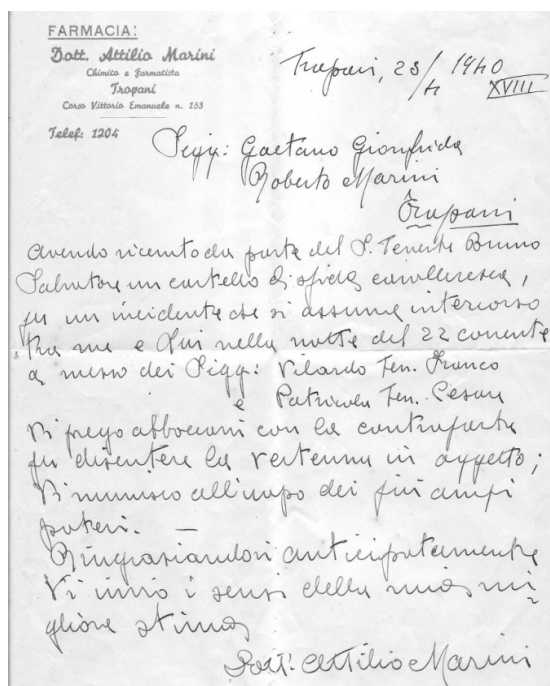 FARMACIA:
Dott. Attilio Marini
Chimico e Farmacista
Trapani
Corso Vittorio Emanuele n. 153
Telef: 1204
Trapani, 23/4 1940
XVIII
Sigg: Gaetano Gionfrida
Roberto Marini
Trapani
Avendo ricevuto da parte del S. Tenente Bruno
Salvatore un cartello di sfida cavalleresca,
per un incidente che si assume intercorso
tra me e Lui nella notte del 22 corrente
a mezzo dei Sigg: Vilardo Ten. Franco
e Ten. Cesare
Vi prego abboccarvi con la controparte
per discutere la vertenza in oggetto;
Vi munisco all'uopo dei più ampi
poteri. —
Ringraziandovi anticipatamente
Vi invio i sensi della mia mi-
gliore stima
Dott. Attilio Marini